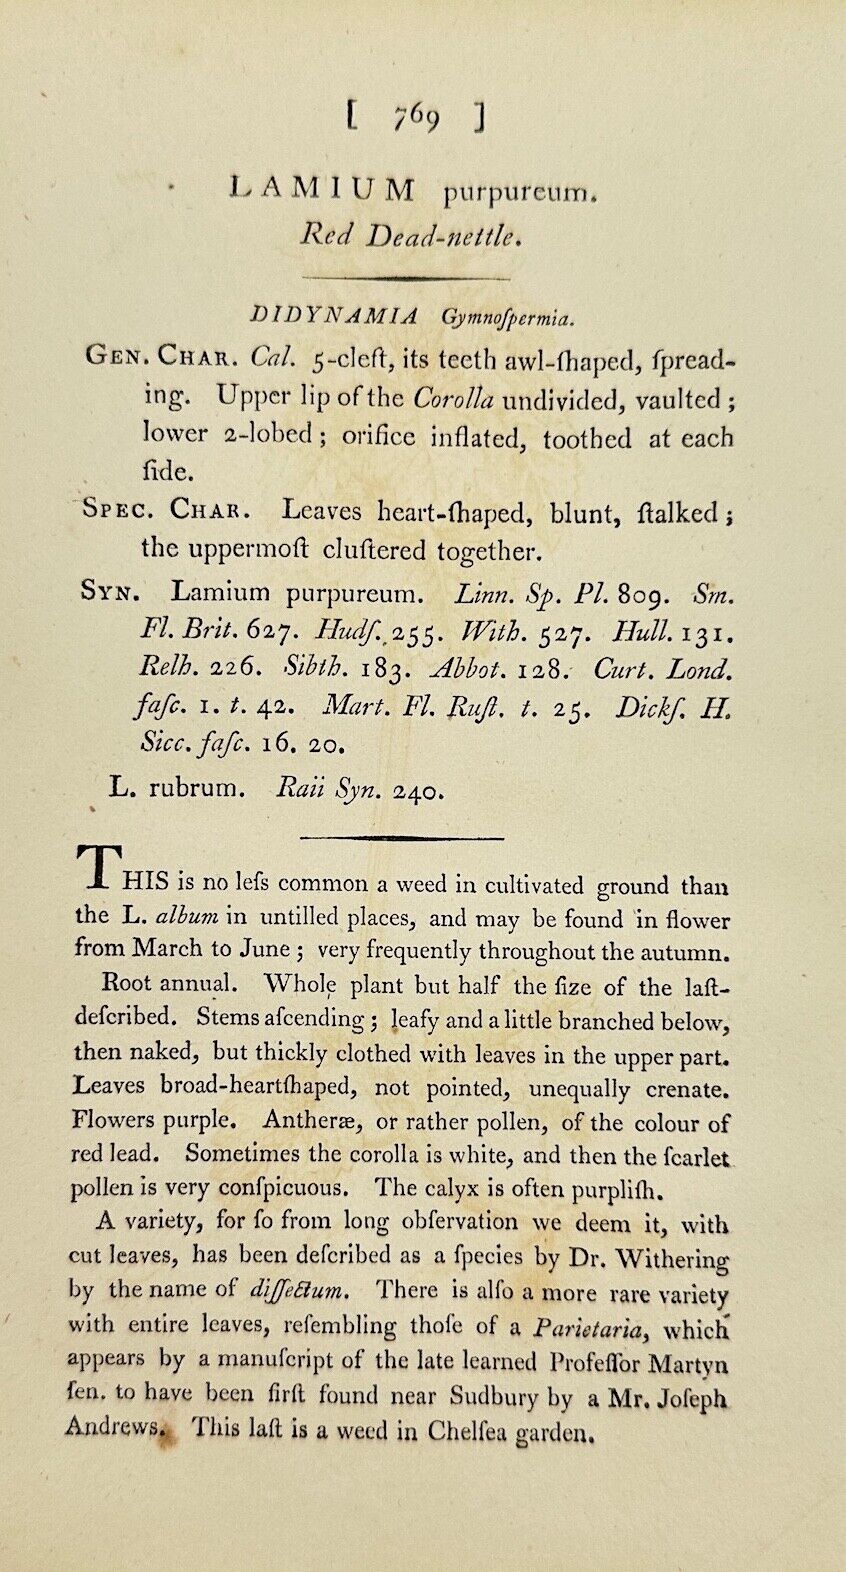 [ 769 ]
LAMIUM purpureum.
Red Dead-nettle.
DIDYNAMIA Gymnoſpermia.
GEN. CHAR. Cal. 5-cleft, its teeth awl-ſhaped, ſpread-
ing. Upper lip of the Corolla undivided, vaulted;
lower 2-lobed; orifice inflated, toothed at each
ſide.
SPEC. CHAR. Leaves heart-ſhaped, blunt, ſtalked;
the uppermoſt cluſtered together.
SYN. Lamium purpureum. Linn. Sp. Pl. 809. Sm.
Fl. Brit. 627. Hudſ. 255. With. 527. Hull. 131.
Relh. 226. Sibth. 183. Abbot. 128. Curt. Lond.
faſc. 1. t. 42. Mart. Fl. Ruſt. t. 25. Dickſ. H.
Sicc. faſc. 16. 20.
L. rubrum. Raii Syn. 240.
THIS is no leſs common a weed in cultivated ground than
the L. album in untilled places, and may be found in flower
from March to June; very frequently throughout the autumn.
Root annual. Whole plant but half the ſize of the laſt-
deſcribed. Stems aſcending; leafy and a little branched below,
then naked, but thickly clothed with leaves in the upper part.
Leaves broad-heartſhaped, not pointed, unequally crenate.
Flowers purple. Antheræ, or rather pollen, of the colour of
red lead. Sometimes the corolla is white, and then the ſcarlet
pollen is very conſpicuous. The calyx is often purpliſh.
A variety, for ſo from long obſervation we deem it, with
cut leaves, has been deſcribed as a ſpecies by Dr. Withering
by the name of diſſectum. There is alſo a more rare variety
with entire leaves, reſembling thoſe of a Parietaria, which
appears by a manuſcript of the late learned Profeſſor Martyn
ſen. to have been firſt found near Sudbury by a Mr. Joſeph
Andrews. This laſt is a weed in Chelſea garden.